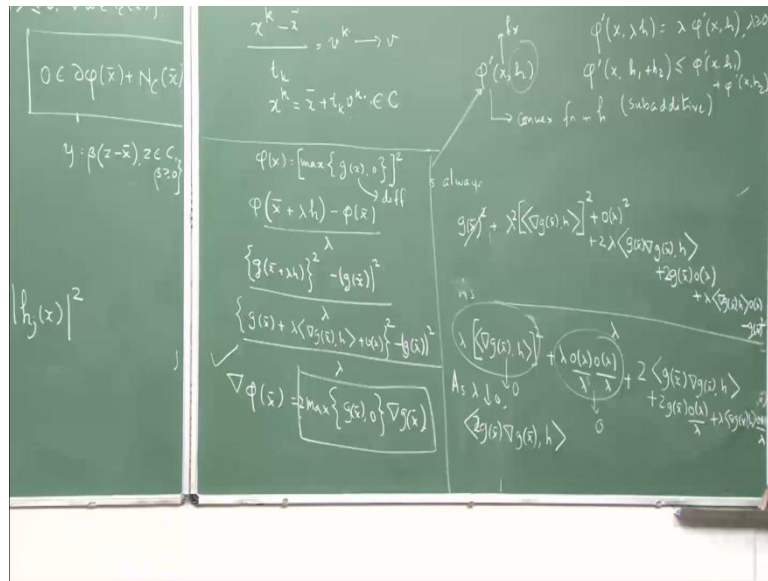 0 ∈ ∂φ(x̄) + N_C(x̄)
y = β(z-x̄), z ∈ C,
β≥0}
|h_j(x)|²
x^k - x̄ / t_k = v^k → v
x^k = x̄ + t_k v^k ∈ C
φ(x) = [max{g(x), 0}]²
diff
φ(x̄ + λh) - φ(x̄) / λ
{g(x̄+λh)}² - (g(x̄))² / λ
{g(x̄) + λ<∇g(x̄), h> + o(λ)}² - (g(x̄))² / λ
∇φ(x̄) = 2 max{g(x̄), 0} ∇g(x̄)
fix
φ'(x, h)
→ convex fn in h (subadditive)
φ'(x, λh) = λ φ'(x, h), λ≥0
φ'(x, h₁+h₂) ≤ φ'(x, h₁)
+ φ'(x, h₂)
always
g(x̄)² + λ²[<∇g(x̄), h>]² + o(λ)²
+ 2λ<g(x̄)∇g(x̄), h>
+ 2g(x̄)o(λ)
+ λ<∇g(x̄), h>o(λ)
- g(x̄)²
λ
λ[<∇g(x̄), h>]² + λ o(λ)/λ o(λ)/λ + 2<g(x̄)∇g(x̄), h>
+ 2g(x̄)o(λ)/λ + λ<∇g(x̄), h>o(λ)/λ
0
0
As λ ↓ 0,
<2g(x̄)∇g(x̄), h>